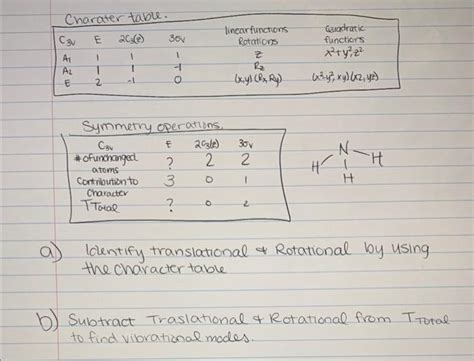 Charater table.
linear functions Quadratic
C3v E 2C3(z) 3σv Rotations functions
A1 1 1 1 z x²+y², z²
A2 1 1 -1 Rz
E 2 -1 0 (x,y)(Rx,Ry) (x²-y², xy)(xz, yz)
Symmetry operations.
C3v E 2C3(z) 3σv
# of unchanged ? 2 2
atoms
Contribution to 3 0 1
Character
T Total ? 0 2
N
H H
H
a) Identify translational & Rotational by using
the character table
b) Subtract Traslational & Rotational from T Total
to find vibrational modes.